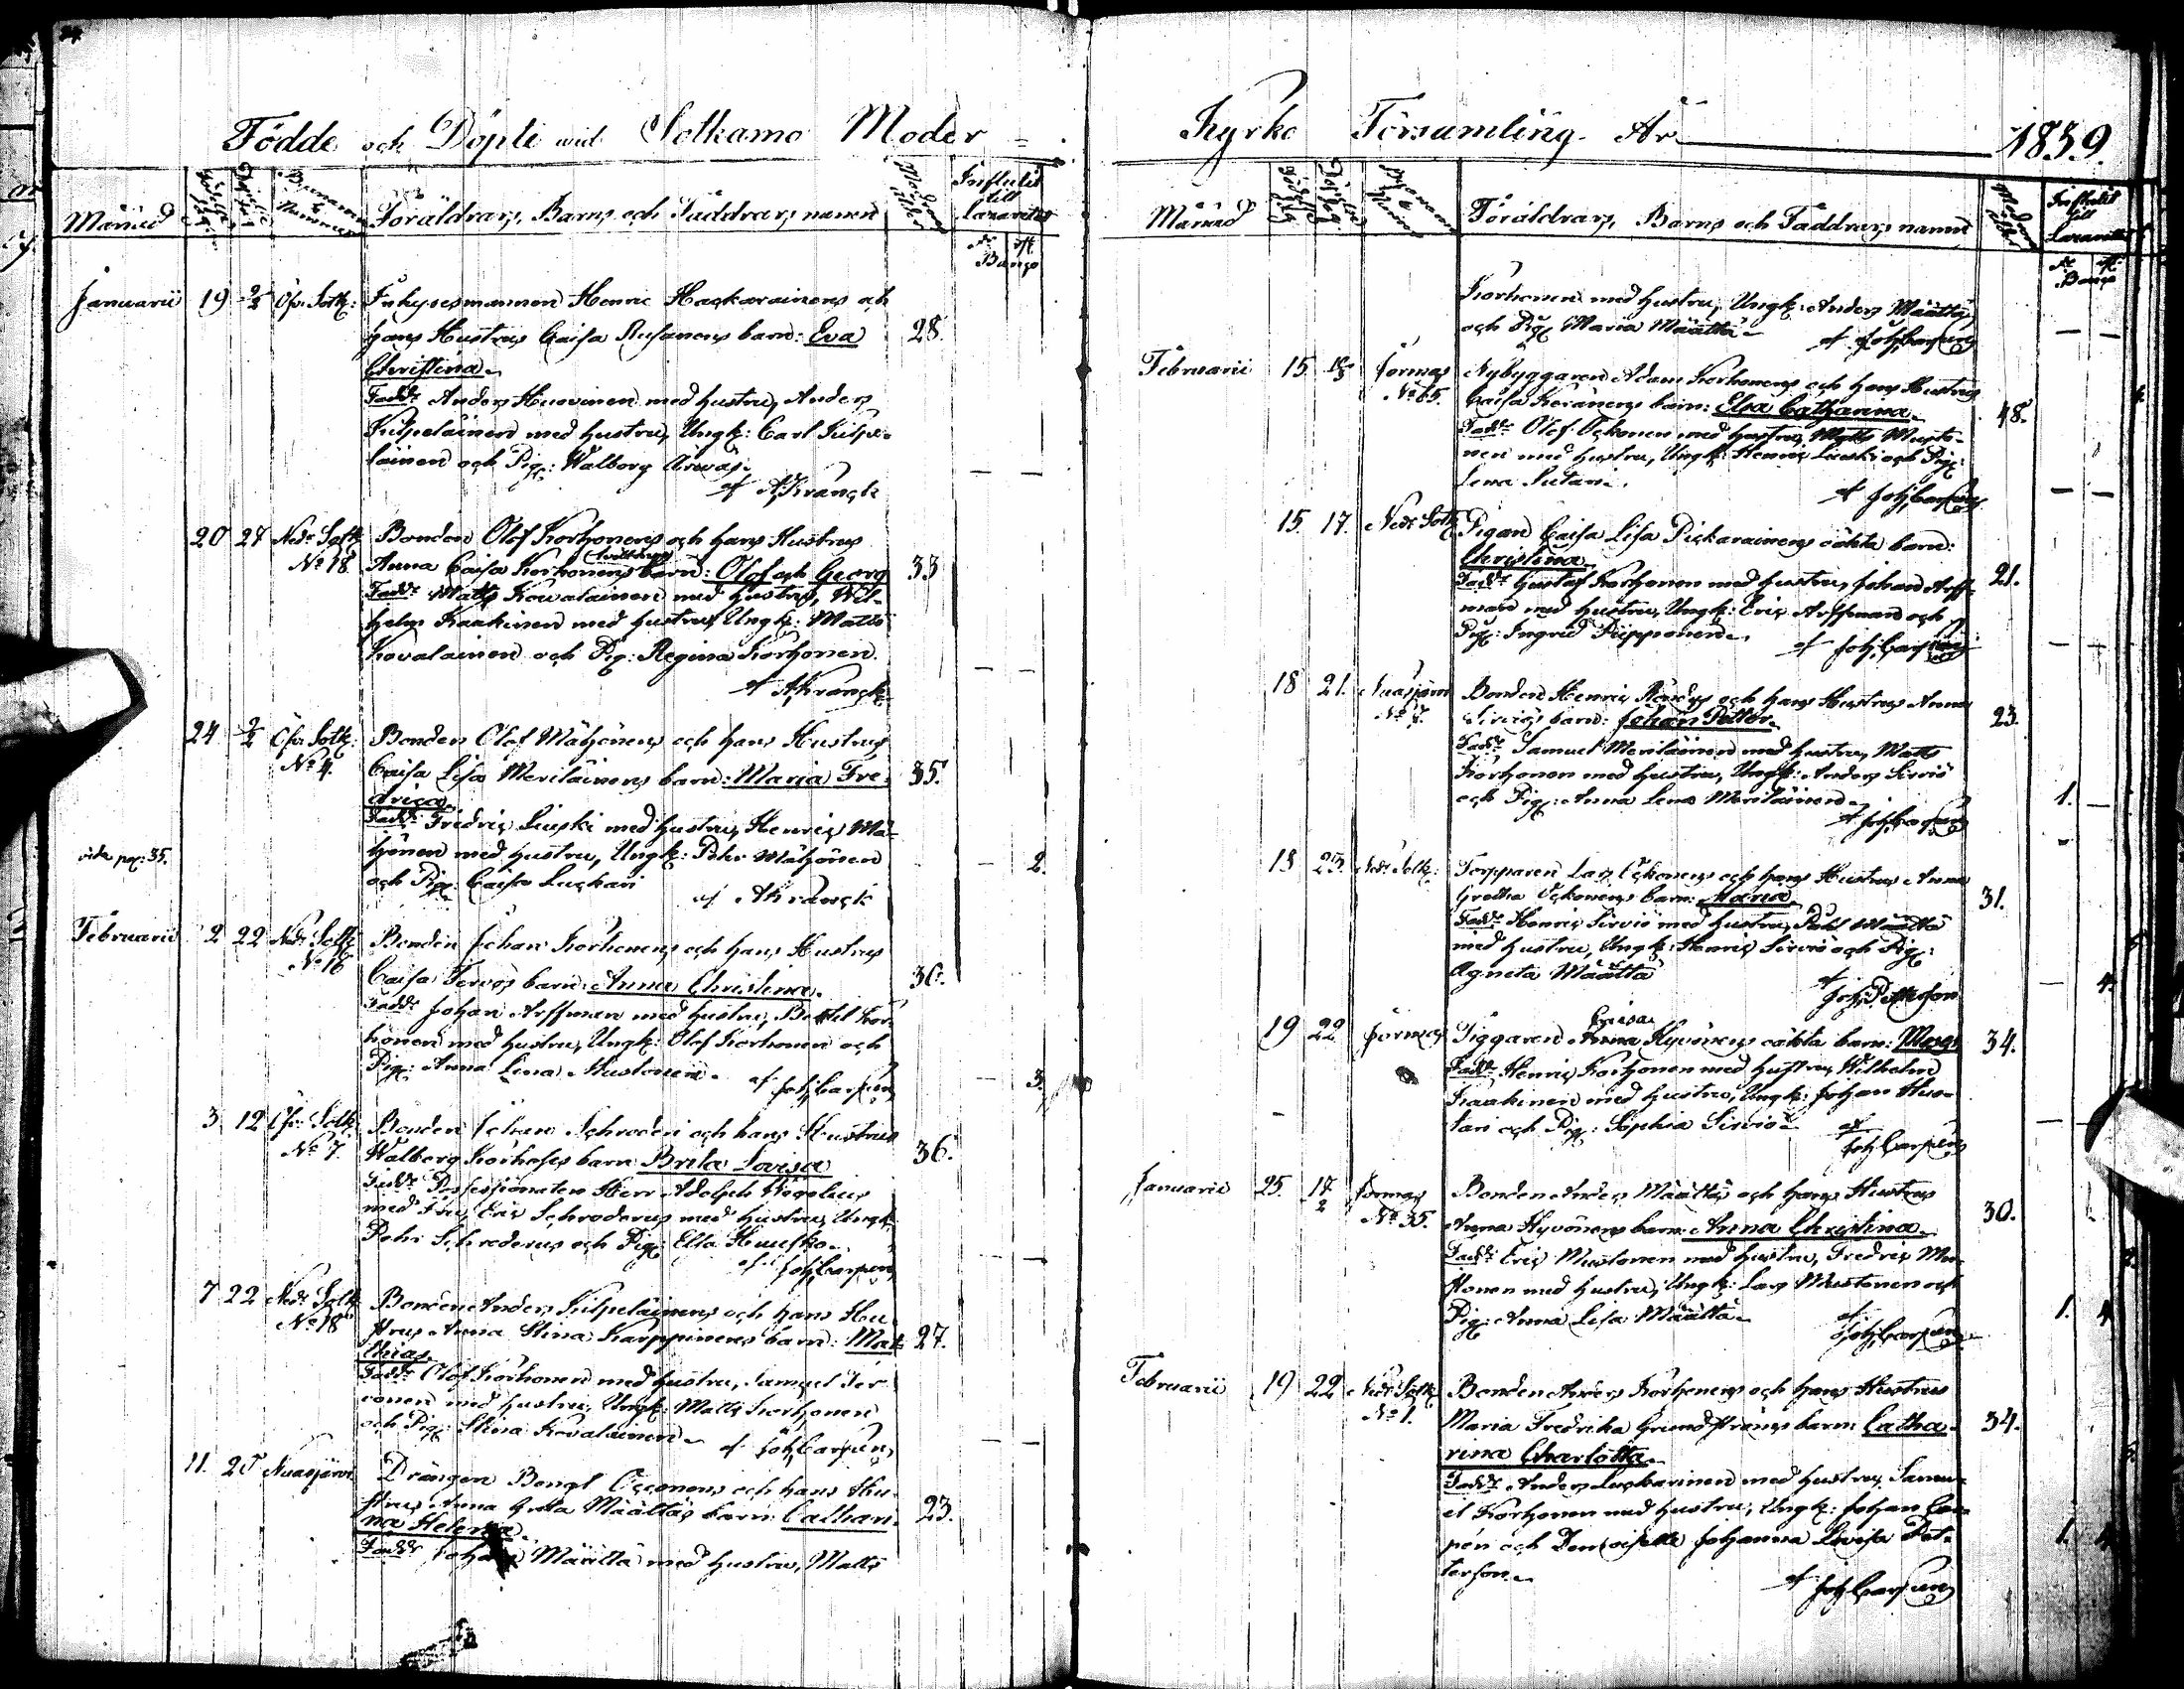 Födde och Döpte wid Sotkamo Moder =
Månad
Föräldrars, Barns och Faddrars namn
Influtit
till
Lazarettet
Banco
Januarii 19 2/2 Öfv. Sotk: Inhysesmannen Henric Hackarainens och
hans Hustrus Caisa Rusanens barn: Eva 28.
Christina.
Fadd: Anders Huovinen med hustru, Anders
Kilpeläinen med hustru, Ungk: Carl Kilpe-
läinen och Pig: Walborg
af AKranck
20 27 Ned: Sotk Bonden Olof Korhonens och hans Hustrus
No 18 Anna Caisa Korhonens barn: Olof och Georg 33
Fadd: Matts Kowalainen med hustru, Wil-
helm Kaakinen med hustru Ungk: Matts
Kovalainen och Pig: Regina Korhonen.
af AKranck
24 2/2 Öfv. Sotk: Bonden Olof Mähönens och hans Hustrus
No 4. Caisa Lisa Meriläinens barn: Maria Fre- 35.
drica.
Fadd: Fredric Liuski med hustru, Henric Mä-
hönen med hustru, Ungk: Pehr Mähönen
vide pag: 35.
2.
och Pig: Caisa Luckari af AKranck
Februarii 2 22 Ned: Sotk Bonden Johan Korhonens och hans Hustrus
No 16 Caisa Tervos barn: Anna Christina. 36.
Fadd: Johan Arffman med hustru, Bertel Kor-
honen med hustru, Ungk: Olof Korhonen och
Pig: Anna Lena Mustonen. af Joh Carpén 3.
3 12 Öfv: Sotk Bonden Johan Schroderi och hans Hustrus
No 7. Walborg barn Brita Lovisa 36.
Fadd: Possessionaten Herr Adolph
med Fru, Eric Schroderus med hustru, Ungk
Pehr Schroderus och Pig: Elsa
af Joh Carpén
7 22 Ned: Sotk Bonden Anders Kilpeläinens och hans Hu-
No 18 strus Anna Stina Karppinens barn: Mat- 27.
thias.
Fadd: Olof Korhonen med hustru, Samuel Ter-
vonen med hustru, Ungk: Matts Korhonen
och Pig: Stina Kovalainen. af Joh Carpén
11. 25 Nuasjärvi Drängen Bengt Occonens och hans Hu-
strus Anna Greta Määttäs barn: Cathari- 23.
na Helena.
Fadd: Johan Määttä med hustru, Matts
Kyrko Församling. År 1839.
Månad
Föräldrars, Barns och Faddrars namn
Influtit
till
Lazarettet
Banco
Korhonen med hustru, Ungk: Anders Määttä
och Pig Maria Määttä
af Joh Carpén
Februarii 15 Jormas Nybyggaren Adam Korhonens och hans Hustrus
No 65. Caisa Keränens barn: Elsa Catharina. 48.
Fadd: Olof Ockonen med hustru, Matts Musto-
nen med hustru, Ungk: Henric Liuski och Pig:
Lena Sutari.
af Joh Carpén
15. 17. Ned: Sotk Pigan Caisa Lisa Pickarainens oäkta barn:
Christina. 21.
Fadd: Gustaf Korhonen med hustru, Johan Arff-
man med hustru, Ungk: Eric Arffman och
Pig: Ingrid Piipponen.
af Joh Carpén
18 21. Nuasjärvi Bonden Henric och hans Hustrus Anna
No 7. Sirviös barn: Johan Petter. 23.
Fadd: Samuel Meriläinen med hustru, Matts
Korhonen med hustru, Ungk: Anders Sirviö
och Pig: Anna Lena Meriläinen. 1.
af Joh Carpén
18 25. Ned: Sotk: Torpparen Lars Ockonens och hans Hustrus Anna
Gretha Ockonens barn: Maria. 31.
Fadd: Henric Sirviö med hustru, Påhl Määttä
med hustru, Ungk: Henric Sirviö och Pig:
Agneta Määttä af
Joh Petterson 4.
Caisa
19 22 Jormas Tiggaren Anna Hyvönens oäkta barn: 34.
Fadd: Henric Korhonen med hustru, Wilhelm
Kaakinen med hustru, Ungk: Johan Huo-
tari och Pig: Sophia Sirviö. af
Joh Carpén
Januarii 25. 17/2 Jormas Bonden Anders Määttäs och hans Hustrus
No 35. Anna Hyvönens barn: Anna Christina. 30.
Fadd: Eric Mustonen med hustru, Fredric Mu-
stonen med hustru, Ungk: Lars Mustonen och
Pig: Anna Lisa Määttä. af 1. 4
Joh Carpén
Februarii 19 22 Ned: Sotk Bonden Anders Korhonens och hans Hustrus
No 1. Maria Fredrika Grundströms barn: Catha- 34.
rina Charlotta.
Fadd: Anders med hustru, Samu-
el Korhonen med hustru, Ungk: Johan Car-
pén och Demoiselle Johanna Lovisa Pet- 1. 4
terson.
af Joh Carpén